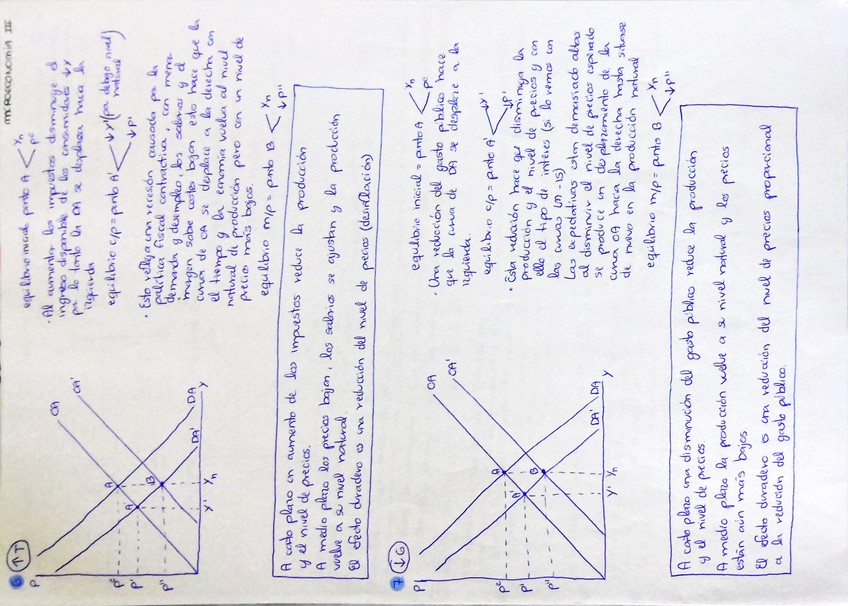 MACROECONOMÍA III
6 ↑T
P
OA
OA'
A
A'
B
DA
DA'
Pe
P'
P''
Y'
Yn
Y
equilibrio inicial punto A < Yn Pe
· Al aumentar los impuestos disminuye el
ingreso disponible de los consumidores ↓Y
por lo tanto la DA se desplaza hacia la
izquierda
equilibrio c/p = punto A' < ↓Y' (por debajo nivel natural) ↓P'
· Esto refleja una recesión causada por la
política fiscal contractiva, con menor
demanda y desempleo, los salarios y el
margen sobre costes bajan esto hace que la
curva de OA se desplace a la derecha con
el tiempo y la economía vuelva al nivel
natural de producción pero con un nivel de
precios más bajos.
equilibrio m/p = punto B < Yn ↓P''
A corto plazo un aumento de los impuestos reduce la producción
y el nivel de precios.
A medio plazo los precios bajan, los salarios se ajustan y la producción
vuelve a su nivel natural.
El efecto duradero es una reducción del nivel de precios (desinflación)
7 ↓G
P
OA
OA'
A
A'
B
DA
DA'
Pe
P'
P''
Y'
Yn
Y
equilibrio inicial = punto A < Yn Pe
· Una reducción del gasto público hace
que la curva de DA se desplace a la
izquierda.
equilibrio c/p = punto A' < ↓Y' ↓P'
· Esta reducción hace que disminuya la
producción y el nivel de precios y con
ello el tipo de interés (si lo vemos con
las curvas LM-IS)
Las expectativas están demasiado altas
al disminuir el nivel de precios esperado
se produce un desplazamiento de la
curva OA hacia la derecha hasta situarse
de nuevo en la producción natural
equilibrio m/p = punto B < Yn ↓P''
A corto plazo una disminución del gasto público reduce la producción
y el nivel de precios
A medio plazo la producción vuelve a su nivel natural y los precios
están aún más bajos
El efecto duradero es una reducción del nivel de precios proporcional
a la reducción del gasto público.